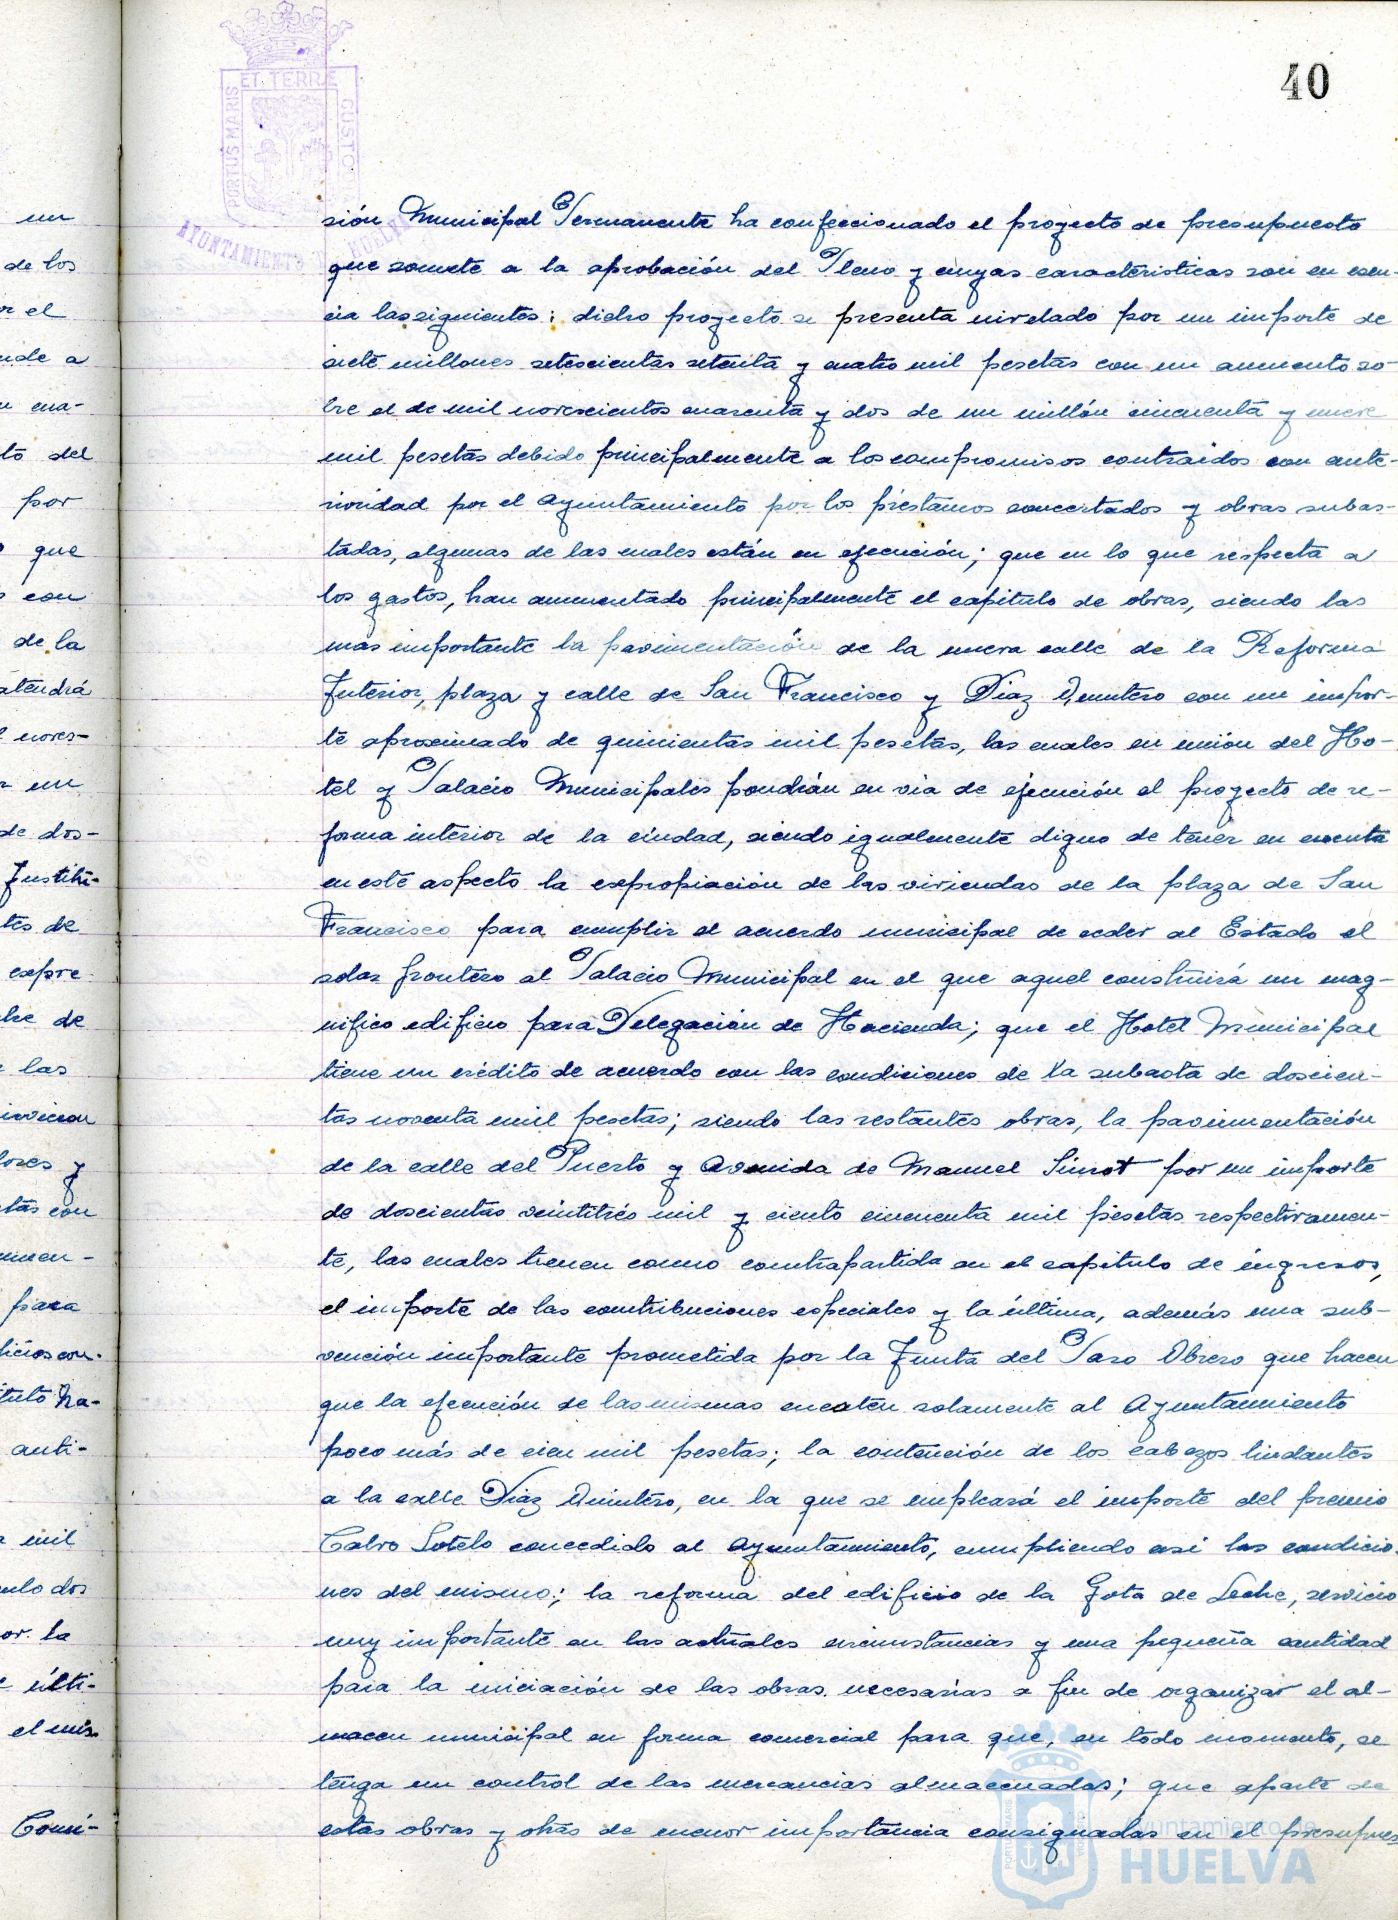 40
PORTUS MARIS
ET TERRÆ
CUSTO
AYUNTAMIENTO
un
de los
el
nde a
cua-
to del
por
que
con
de la
atendrá
noves-
un
de dos-
Instit-
tes de
expre
de
las
y
tas con
para
Na-
anti-
mil
or la
últi-
el mis-
Comi-
sión Municipal Permanente ha confeccionado el proyecto de presupuesto
que somete a la aprobación del Pleno y cuyas características son en esen-
cia las siguientes: dicho proyecto se presenta nivelado por un importe de
siete millones setescientas setenta y cuatro mil pesetas con un aumento so-
bre el de mil novescientos cuarenta y dos de un millón cincuenta y nueve
mil pesetas debido principalmente a los compromisos contraidos con ante-
rioridad por el Ayuntamiento por los préstamos concertados y obras subas-
tadas, algunas de las cuales están en ejecución; que en lo que respecta a
los gastos, han aumentado principalmente el capitulo de obras, siendo las
más importante la pavimentación de la nueva calle de la Reforma
Interior, plaza y calle de San Francisco y Diaz Quintero con un impor-
te aproximado de quinientas mil pesetas, las cuales en unión del Ho-
tel y Palacio Municipales pondrán en via de ejecución el proyecto de re-
forma interior de la ciudad, siendo igualmente digno de tener en cuenta
en este aspecto la expropiación de las viviendas de la plaza de San
Francisco para cumplir el acuerdo municipal de ceder al Estado el
solar frontero al Palacio Municipal en el que aquel construirá un mag-
nifico edificio para Delegación de Hacienda; que el Hotel Municipal
tiene un crédito de acuerdo con las condiciones de la subasta de doscien-
tas noventa mil pesetas; siendo las restantes obras, la pavimentación
de la calle del Puerto y Avenida de Manuel Siurot por un importe
de doscientas veintitrés mil y ciento cincuenta mil pesetas respectivamen-
te, las cuales tienen como contrapartida en el capitulo de ingresos,
el importe de las contribuciones especiales y la última, además una sub-
vención importante prometida por la Junta del Paro Obrero que hacen
que la ejecución de las mismas cuesten solamente al Ayuntamiento
poco más de cien mil pesetas; la contención de los cabezos lindantes
a la calle Diaz Quintero, en la que se empleará el importe del premio
Calvo Sotelo concedido al Ayuntamiento, cumpliendo asi las condicio-
nes del mismo; la reforma del edificio de la Gota de Leche, servicio
muy importante en las actuales circunstancias y una pequeña cantidad
para la iniciación de las obras necesarias a fin de organizar el al-
macen municipal en forma comercial para que, en todo momento, se
tenga un control de las mercancias almacenadas; que aparte de
estas obras y otras de menor importancia consignadas en el presupues
Ayuntamiento de
HUELVA